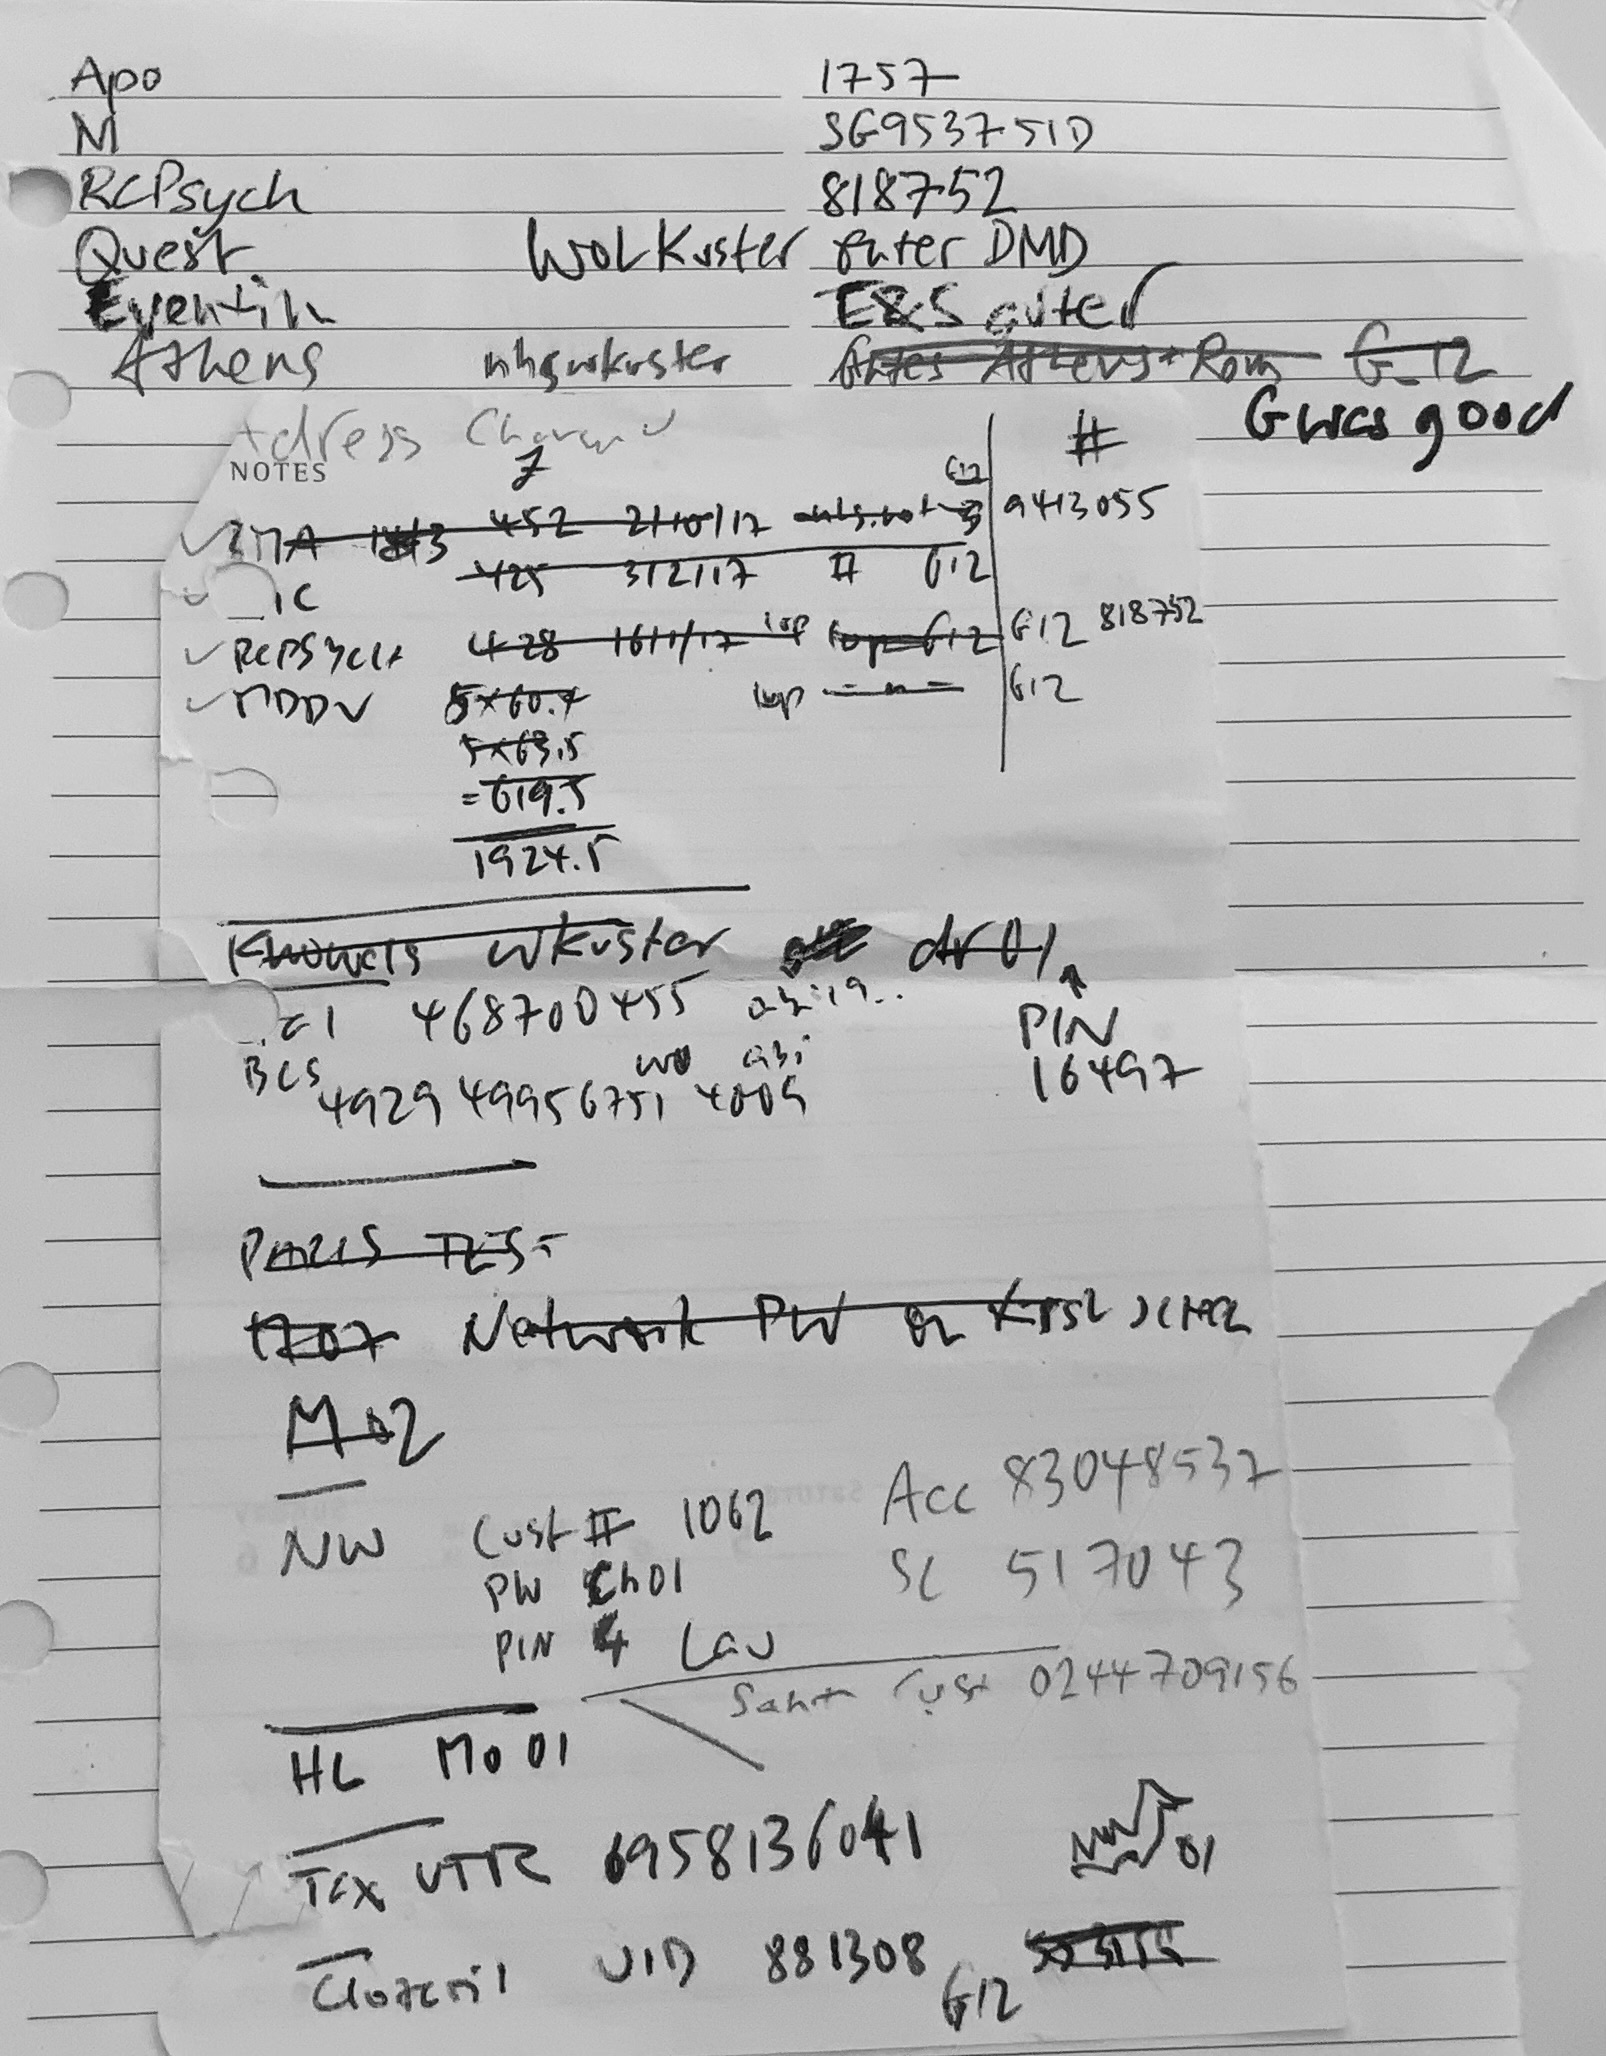 Apo 1757
M SG953751D
RCPsych 818752
Quest WoLKuster enter DMD
Eventin E&S guter
Athens nhgwkuster Gutes Athens + Rom G_12
G was good
Adress
NOTES
#
452 21/10/17 G12 9413055
425 3/2/17 # G12
RCPSych 428 16/1/17 top G12 G12 818752
MDDU 5x60.4 top - " - G12
5x63.5
= 619.5
1924.5
Knowels wkuster dr01
468700455 PIN
BCS 16497
4929 49956751 4009
PARIS TEST
1707 Network PW
M02
NW Cust # 1062 Acc 83048537
PW Ch01 SC 517043
PIN 4 Lau
Sant Cust 0244709156
HL Mo01
Tax UTR 6958136041 01
Clozaril UID 881308 G12